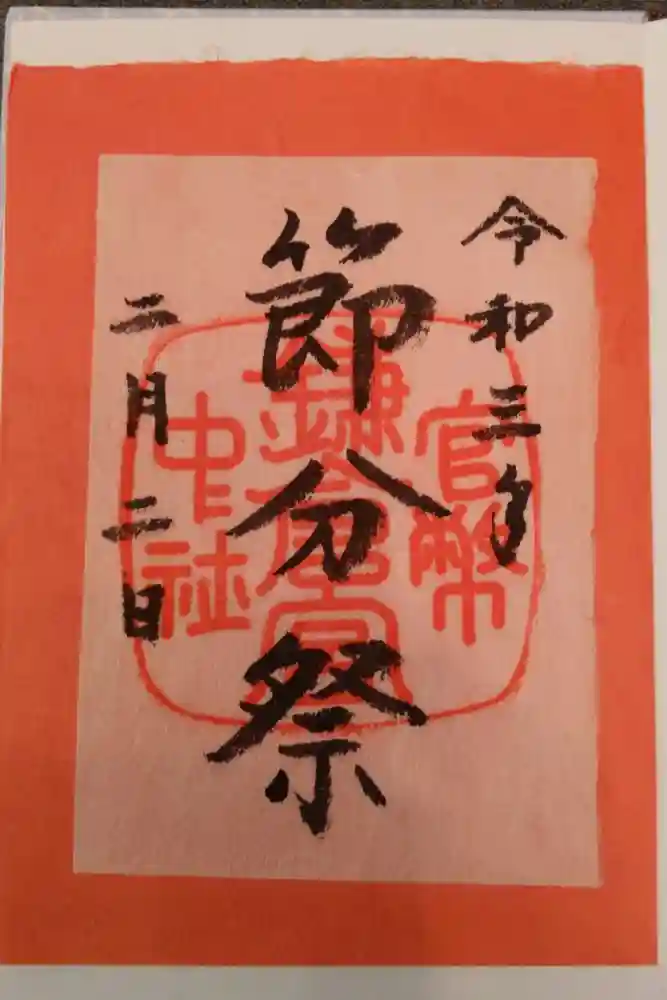 令和三年
節分祭
二月二日
官幣
鎌倉宮
中社